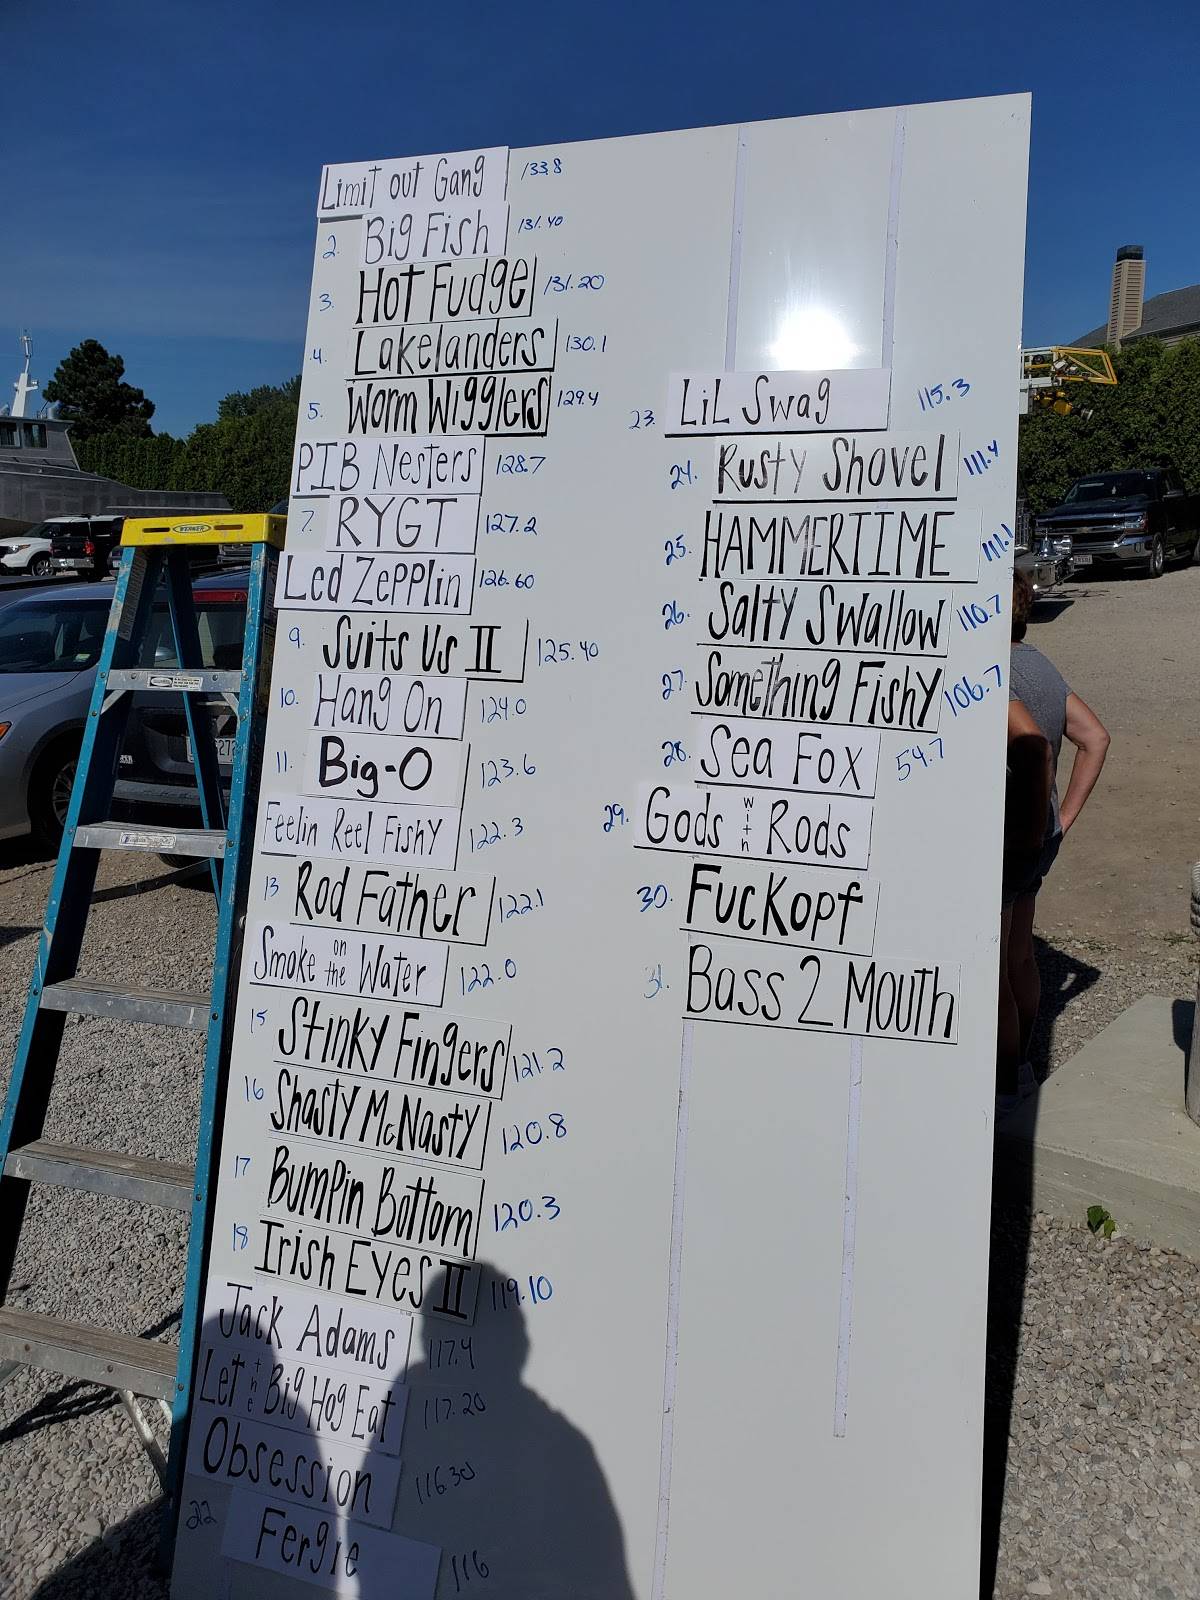 Limit out Gang 133.8
2. Big Fish 131.40
3. Hot Fudge 131.20
4. Lakelanders 130.1
5. Worm Wigglers 129.4
PIB Nesters 128.7
7. RYGT 127.2
Led Zepplin 126.60
9. Suits Us II 125.40
10. Hang On 124.0
11. Big-O 123.6
Feelin Reel Fishy 122.3
13 Rod Father 122.1
Smoke on the Water 122.0
15 Stinky Fingers 121.2
16 Shasty McNasty 120.8
17 Bumpin Bottom 120.3
18 Irish Eyes II 119.10
Jack Adams 117.4
Let the Big Hog Eat 117.20
Obsession 116.30
22 Fergie 116
23. LiL Swag 115.3
24. Rusty Shovel 111.4
25. HAMMERTIME 111.1
26. Salty Swallow 110.7
27. Something Fishy 106.7
28. Sea Fox 54.7
29. Gods with Rods
30. Fuckopf
31. Bass 2 Mouth
WERNER